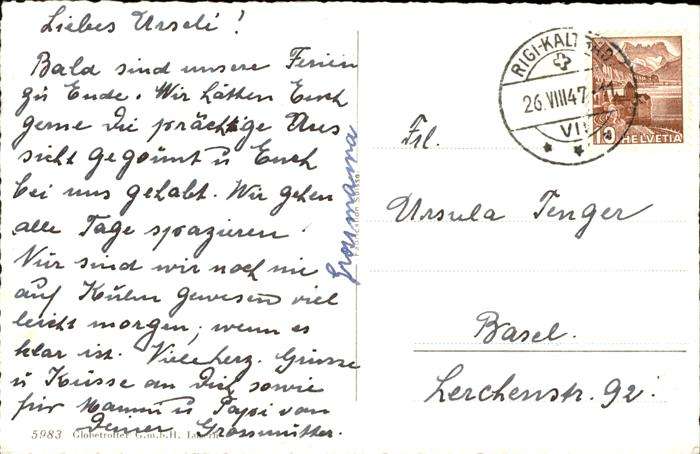 Liebes Urseli!
Bald sind unsere Ferien
zu Ende. Wir hätten Euch
gerne die prächtige Aus
sicht gegönnt u Euch
bei uns gehabt. Wir gehen
alle Tage spazieren.
Nur sind wir noch nie
auf Kulm gewesen viel
leicht morgen, wenn es
klar ist. Viele herz. Grüsse
u Küsse an Dich sowie
für Mammi u Papi von
Deiner Grossmutter.
Grossmama
5983 Globetrotter G.m.b.H. Luzern
RIGI-KALTBAD
26.VIII47.-11
HELVETIA
10
Frl.
Ursula Tenger
Basel.
Lerchenstr. 92.